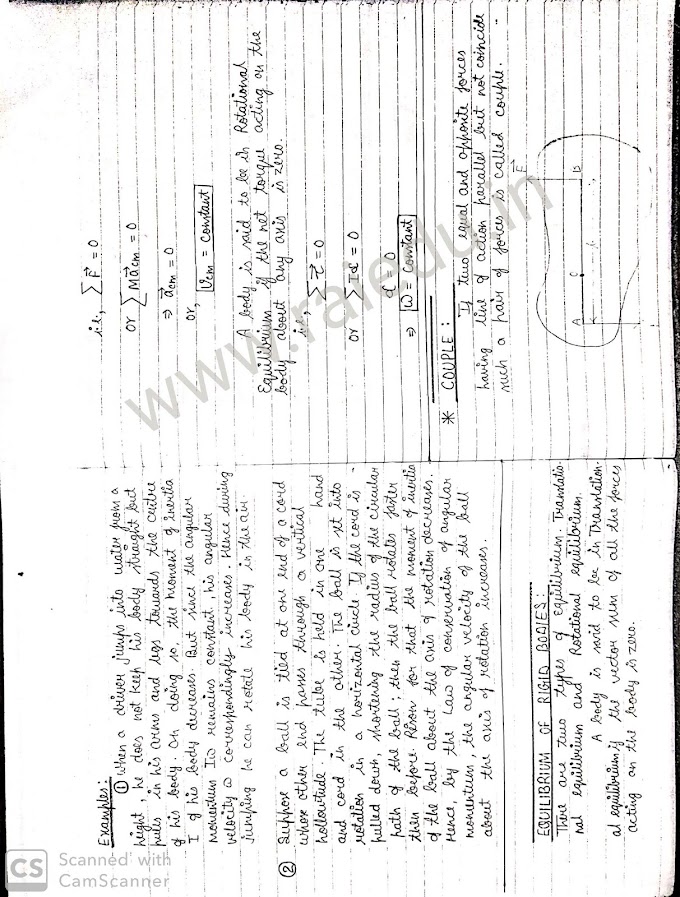 Examples:
① When a driver jumps into water from a
height, he does not keep his body straight but
pulls in his arms and legs towards the centre
of his body. On doing so, the moment of inertia
I of his body decreases. But since the angular
momentum Iω remains constant, his angular
velocity ω correspondingly increases. Hence during
jumping he can rotate his body in the air.
② Suppose a ball is tied at one end of a cord
whose other end passes through a vertical
hollowtude. The tube is held in one hand
and cord in the other. The ball is set into
rotation in a horizontal circle. If the cord is
pulled down, shortening the radius of the circular
path of the ball, then the ball rotates faster
then before. Rison for that the moment of inertia
of the ball about the axis of rotation decreases.
Hence, by the Law of conservation of angular
momentum, the angular velocity of the ball
about the axis of rotation increases.
EQUILIBRIUM OF RIGID BODIES:
There are two types of equilibrium. Translatio-
nal equilibrium and Rotational equilibrium.
A body is said to be in Translation-
al equilibrium, if the vector sum of all the forces
acting on the body is zero.
i.e, ∑F⃗ = 0
or ∑Ma⃗cm = 0
⇒ a⃗cm = 0
or, Vcm = Constant
A body is said to be in Rotational
Equilibrium if the net torque acting on the
body about any axis is zero.
i.e, ∑τ⃗ = 0
or ∑Iα = 0
α = 0
⇒ ω = Constant
* COUPLE:
If two equal and opposite forces
having line of action parallel but not coincide
such a pair of forces is called couple.
F⃗
A C B
www.rajedu.in
CS Scanned with
CamScanner